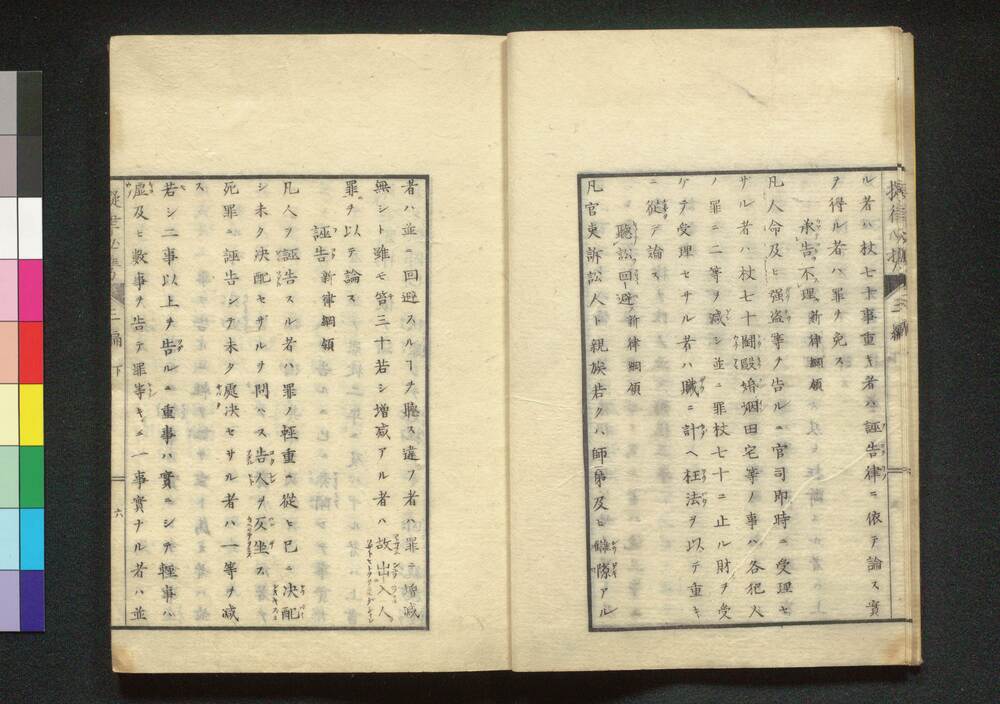 ル者ハ杖七十事重キ者ハ誣告律ニ依テ論ス實
ヲ得ル者ハ罪ヲ免ス
承告不理 新律綱領
凡人命及ヒ强盜等ヲ告ルニ官司即時ニ受理セ
サル者ハ杖七十鬪毆婚姻田宅等ノ事ハ各犯人
ノ罪ニ二等ヲ減シ並ニ罪杖七十ニ止ル財ヲ受
ケテ受理セサル者ハ贓ニ計ヘ枉法ヲ以テ重キ
ニ從テ論ス
聽訟回避 新律綱領
凡官吏訴訟人ト親族若クハ師弟及ヒ讎隙アル
者ハ並ニ回避スルヿヲ聽ス違フ者ハ罪ニ增減
無シト雖モ笞三十若シ增減アル者ハ故出入人
罪ヲ以テ論ス
誣告 新律綱領
凡人ヲ誣告スル者ハ罪ノ輕重ニ從ヒ已ニ决配
シ未タ决配セサルヲ問ハス告人ヲ反坐ス
死罪ニ誣告シテ未タ處决セサル者ハ一等ヲ減
ス
若シ二事以上ヲ告ルニ重事ハ實ニシテ輕事ハ
虛及ヒ數事ヲ告テ罪等キニ一事實ナル者ハ並
三編 下
六